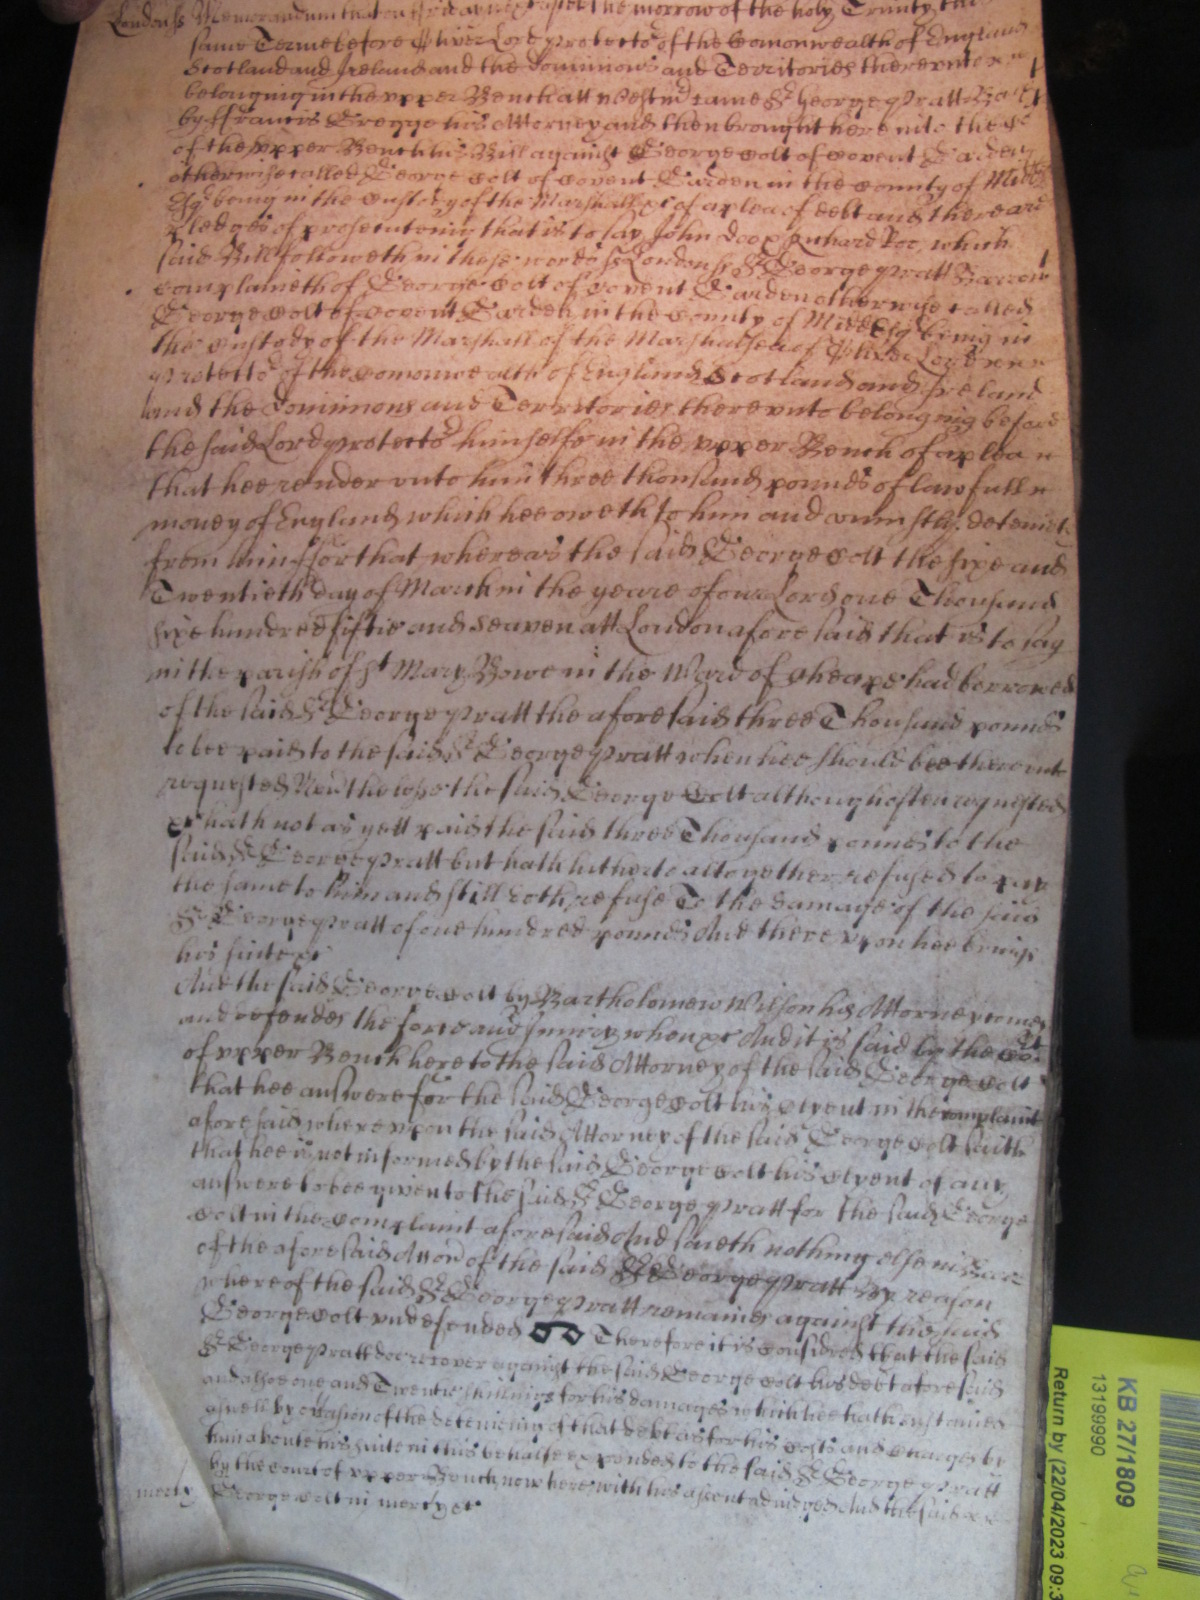 Londonss Memorandum that on ffryday next after the morrow of the holy Trinity this
same Terme before Oliver Lord Protector of the Comonwealth of England
Scotland and Ireland and the Dominions and Territories therevnto
belonging in the vpper Bench att Westmr came Sr George Pratt Bart
by ffrancis Gregge his Attorney and then brought here into the Ct
of the vpper Bench his Bill against George Colt of Covent Garden
otherwise called George Colt of Covent Garden in the County of Middx
Esqr being in the Custody of the Marshall &c of a plea of debt and there are
pledges of prosecuteing that is to say John Doo & Richard Roo, which
said Bill followeth in these words ss Londonss Sr George Pratt Barront
complaineth of George Colt of Covent Garden otherwise called
George Colt of Covent Garden in the County of Middx Esqr being in
the Custody of the Marshall of the Marshalsea of Oliver Lord
Protector of the Comonwealth of England Scotland and Ireland
and the Dominions and Territories therevnto belonging before
the said Lord Protector himselfe in the vpper Bench of a plea
that hee render vnto him three thousand pounds of lawfull
money of England which hee oweth to him and vniustly deteineth
from him ffor that whereas the said George Colt the sixe and
Twentieth day of March in the yeare of our Lord one Thousand
sixe hundred fiftie and seaven att London aforesaid that is to say
in the parish of St Mary Bowe in the Ward of Cheape had borrowed
of the said Sr George Pratt the aforesaid three Thousand pounds
to bee paid to the said Sr George Pratt when hee should bee therevnto
requested Neverthelesse the said George Colt although often requested
&c hath not as yett paid the said three Thousand pounds to the
said Sr George Pratt but hath hitherto altogether refused to pay
the same to him and still doth refuse To the damage of the said
Sr George Pratt of one hundred pounds And therevpon hee brings
his suite &c
And the said George Colt by Bartholomew Wilson his Attorney comes
and defendes the force and Iniury when &c And it is said by the Ct
of vpper Bench here to the said Attorney of the said George Colt
that hee answere for the said George Colt his Clyent in the complaint
aforesaid wherevpon the said Attorney of the said George Colt saith
that hee is not informed by the said George Colt his Clyent of any
answere to bee given to the said Sr George Pratt for the said George
Colt in the Complaint aforesaid And saieth nothing else in
of the aforesaid of the said Sr George Pratt By reason
whereof the said Sr George Pratt remaines against the said
George Colt vndefended Therefore it is considred that the said
Sr George Pratt doe recover against the said George Colt his debt aforesaid
and alsoe one and Twentie shillings for his damages which hee hath susteined
aswell by occasion of the deteineing of that debt as for his Costs and Charges by
him about his suite in this behalfe expended to the said Sr George Pratt
by the Court of vpper Bench now here with his assent adiudged And the said
mercy George Colt in mercy &c
KB 27/1809
13199990
Return by (22/04/2023 09:3